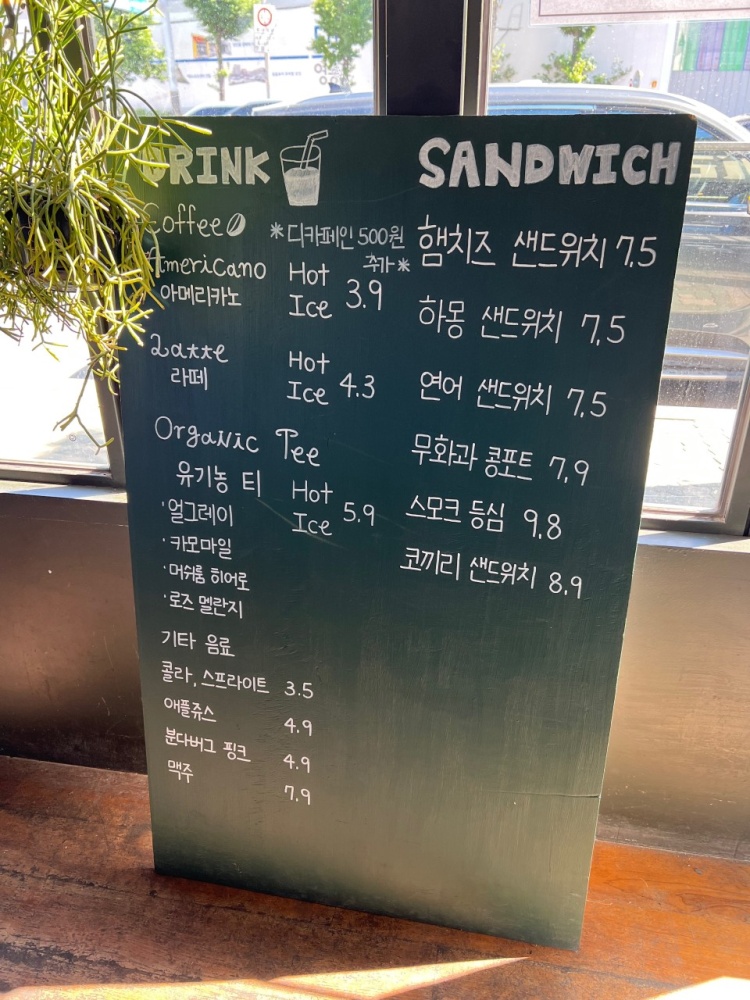 DRINK
Coffee
*디카페인 500원
추가*
Americano
아메리카노
Hot
Ice 3.9
Latte
라떼
Hot
Ice 4.3
Organic Tee
유기농 티
Hot
Ice 5.9
·얼그레이
·카모마일
·머쉬룸 히어로
·로즈 멜란지
기타 음료
콜라, 스프라이트 3.5
애플쥬스 4.9
분다버그 핑크 4.9
맥주 7.9
SANDWICH
햄치즈 샌드위치 7.5
하몽 샌드위치 7.5
연어 샌드위치 7.5
무화과 콩포트 7.9
스모크 등심 9.8
코끼리 샌드위치 8.9